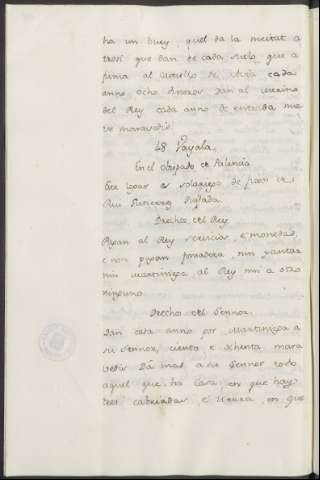 ha un buey, quel da la meitat a
trosi que dan de cada suelo que a
fuma al Castiello de Muño cada
anno ocho dineros dan al merino
del Rey cada anno de entrada nue
ve maravedis.
48 Vayala.
En el obispado de Palencia
Este logar es solariego de fijos de
Rui Gutierrez Quijada
Derechos del Rey
Pagan al Rey servicios, e monedas,
e non pagan fonsadera, nin yantar
nin Martiniega al Rey nin a otro
ninguno.
Derechos del Sennor.
Dan cada anno por Martiniega a
su Sennor, ciento e ochenta mara
vedis Dá mas a su Sennor todo
aquel que ha Casa en que hay
seis cabriadas, e
en que